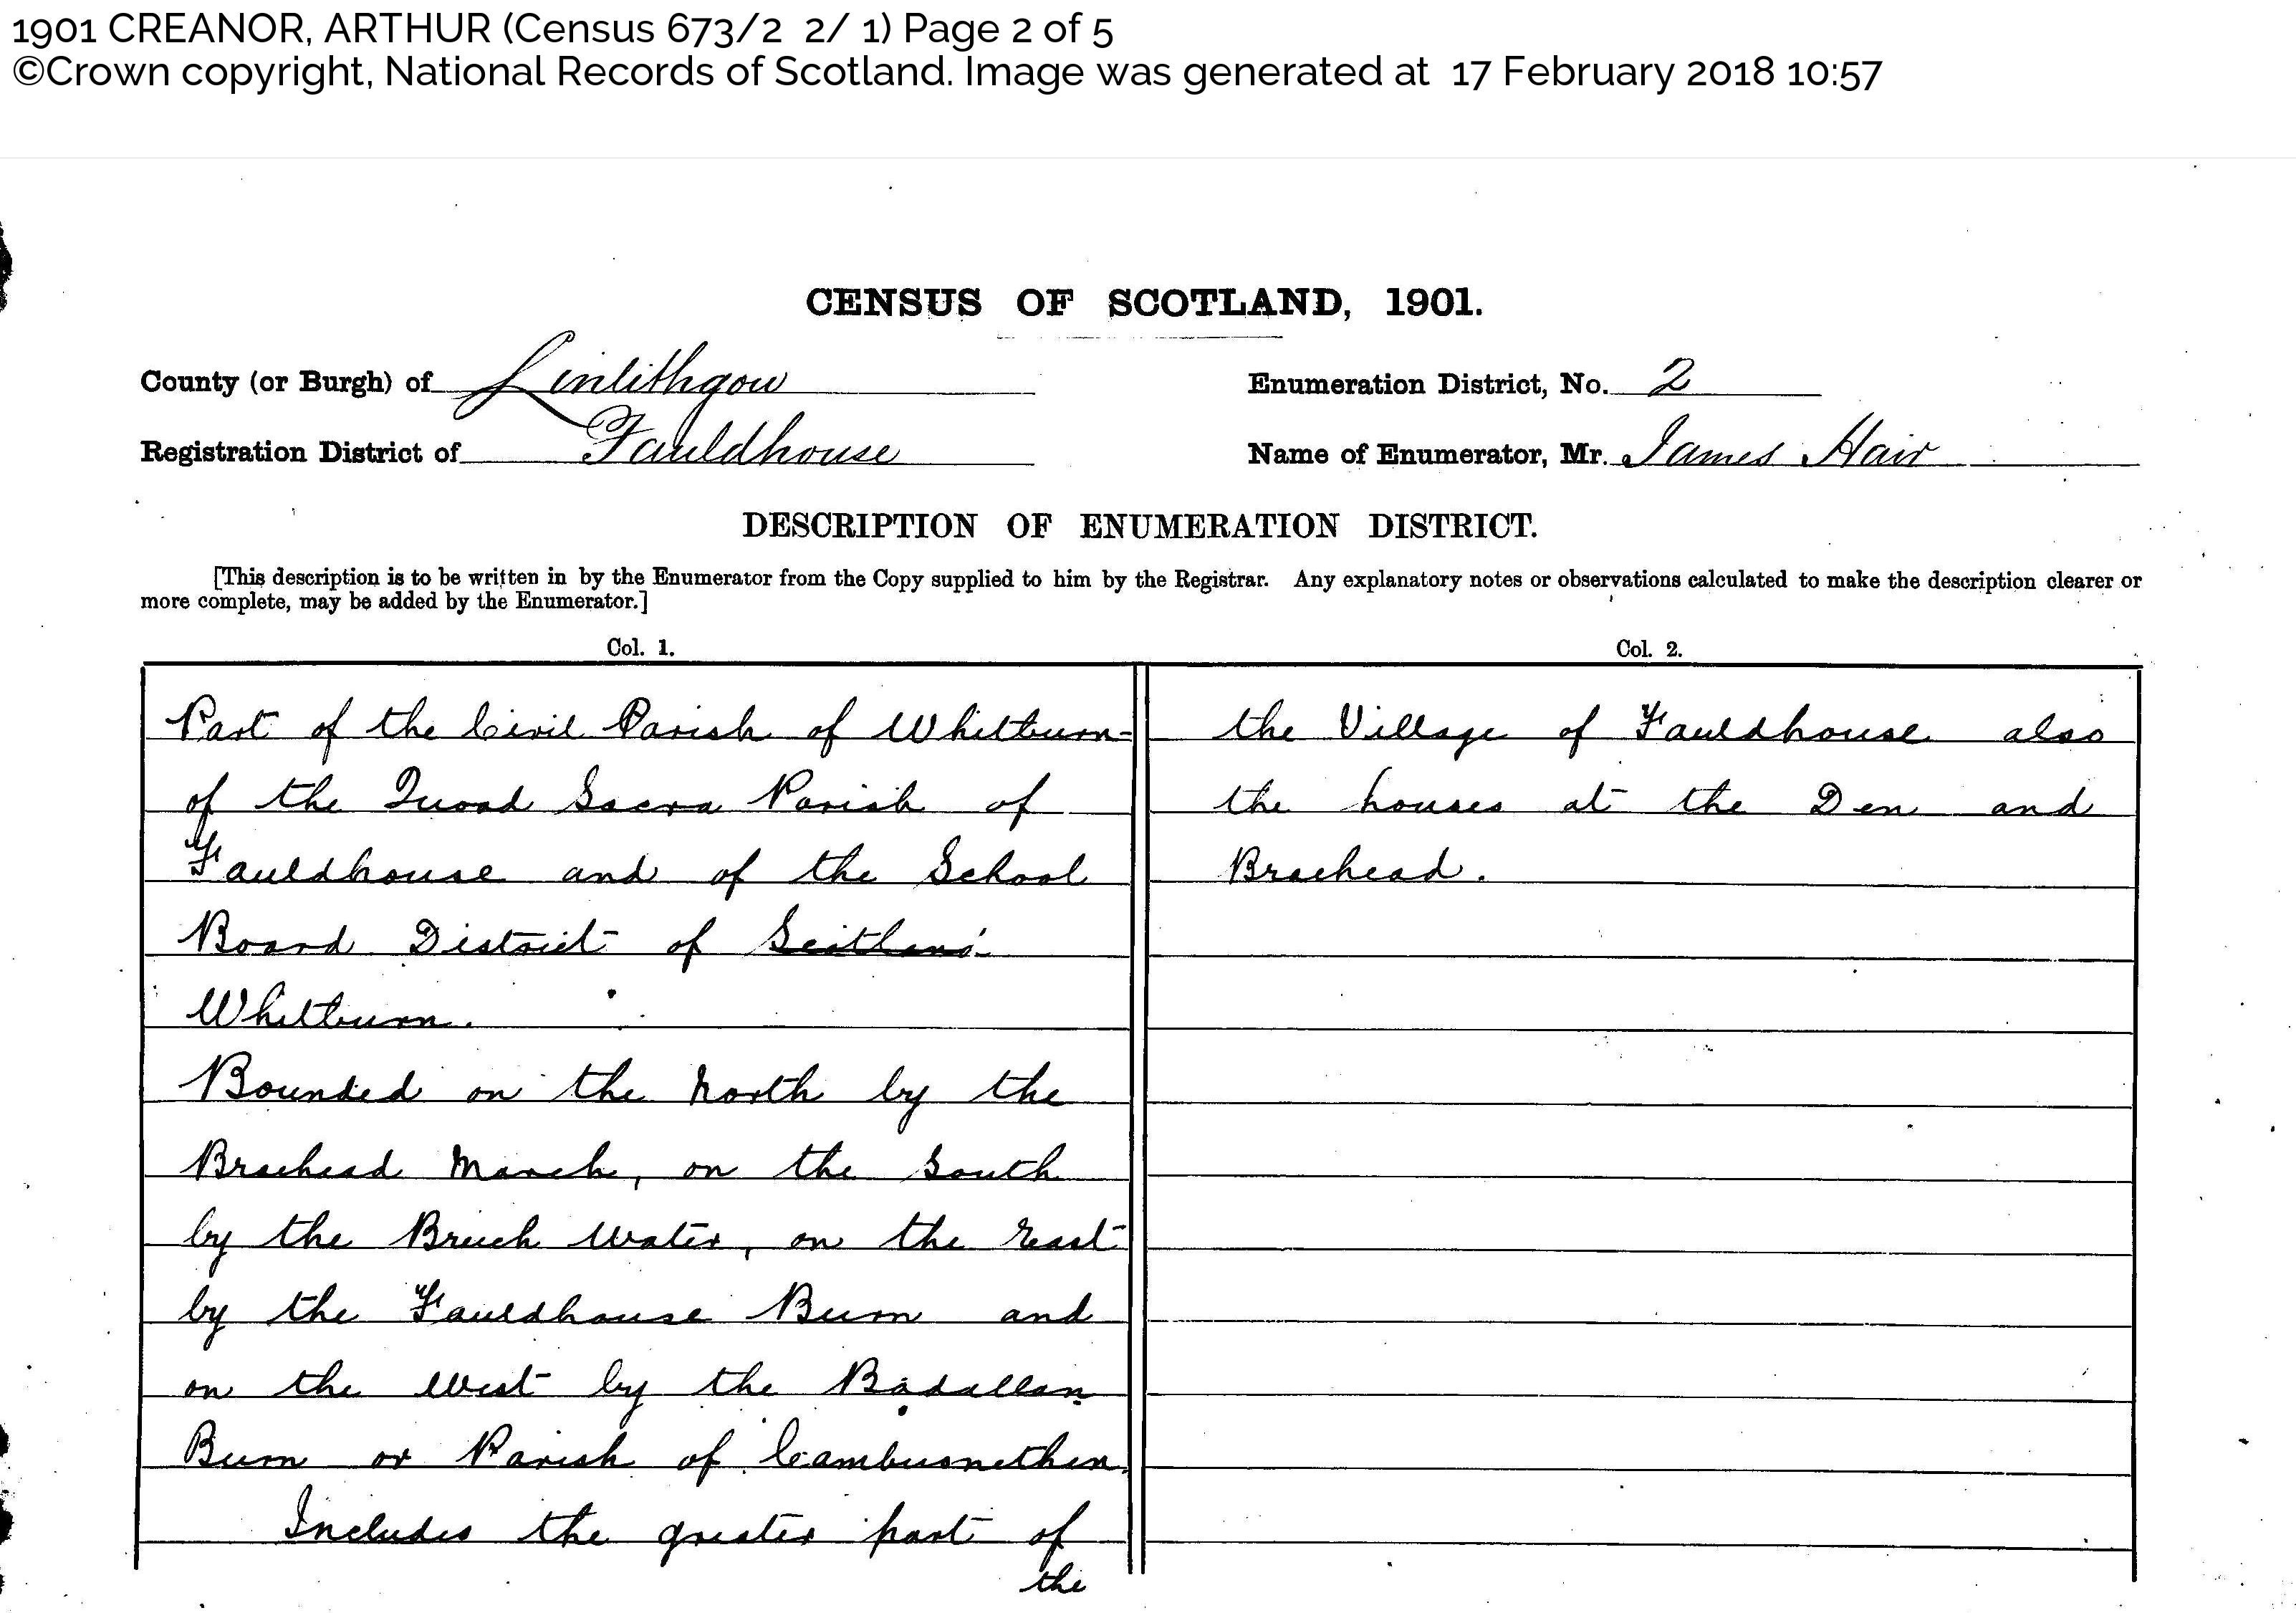 1901 CREANOR, ARTHUR (Census 673/2 2/ 1) Page 2 of 5
©Crown copyright, National Records of Scotland. Image was generated at 17 February 2018 10:57
CENSUS OF SCOTLAND, 1901.
County (or Burgh) of Linlithgow
Enumeration District, No. 2
Registration District of Fauldhouse
Name of Enumerator, Mr. James Hair
DESCRIPTION OF ENUMERATION DISTRICT.
[This description is to be written in by the Enumerator from the Copy supplied to him by the Registrar. Any explanatory notes or observations calculated to make the description clearer or
more complete, may be added by the Enumerator.]
Col. 1.
Part of the Civil Parish of Whitburn
of the Quoad Sacra Parish of
Fauldhouse and of the School
Board District of
Whitburn.
Bounded on the North by the
Braehead March, on the South
by the Breich Water, on the East
by the Fauldhouse Burn and
on the West by the Badallan
Burn or Parish of Cambusnethen.
Includes the greater part of
the
Col. 2.
the Village of Fauldhouse also
the houses at the Den and
Braehead.